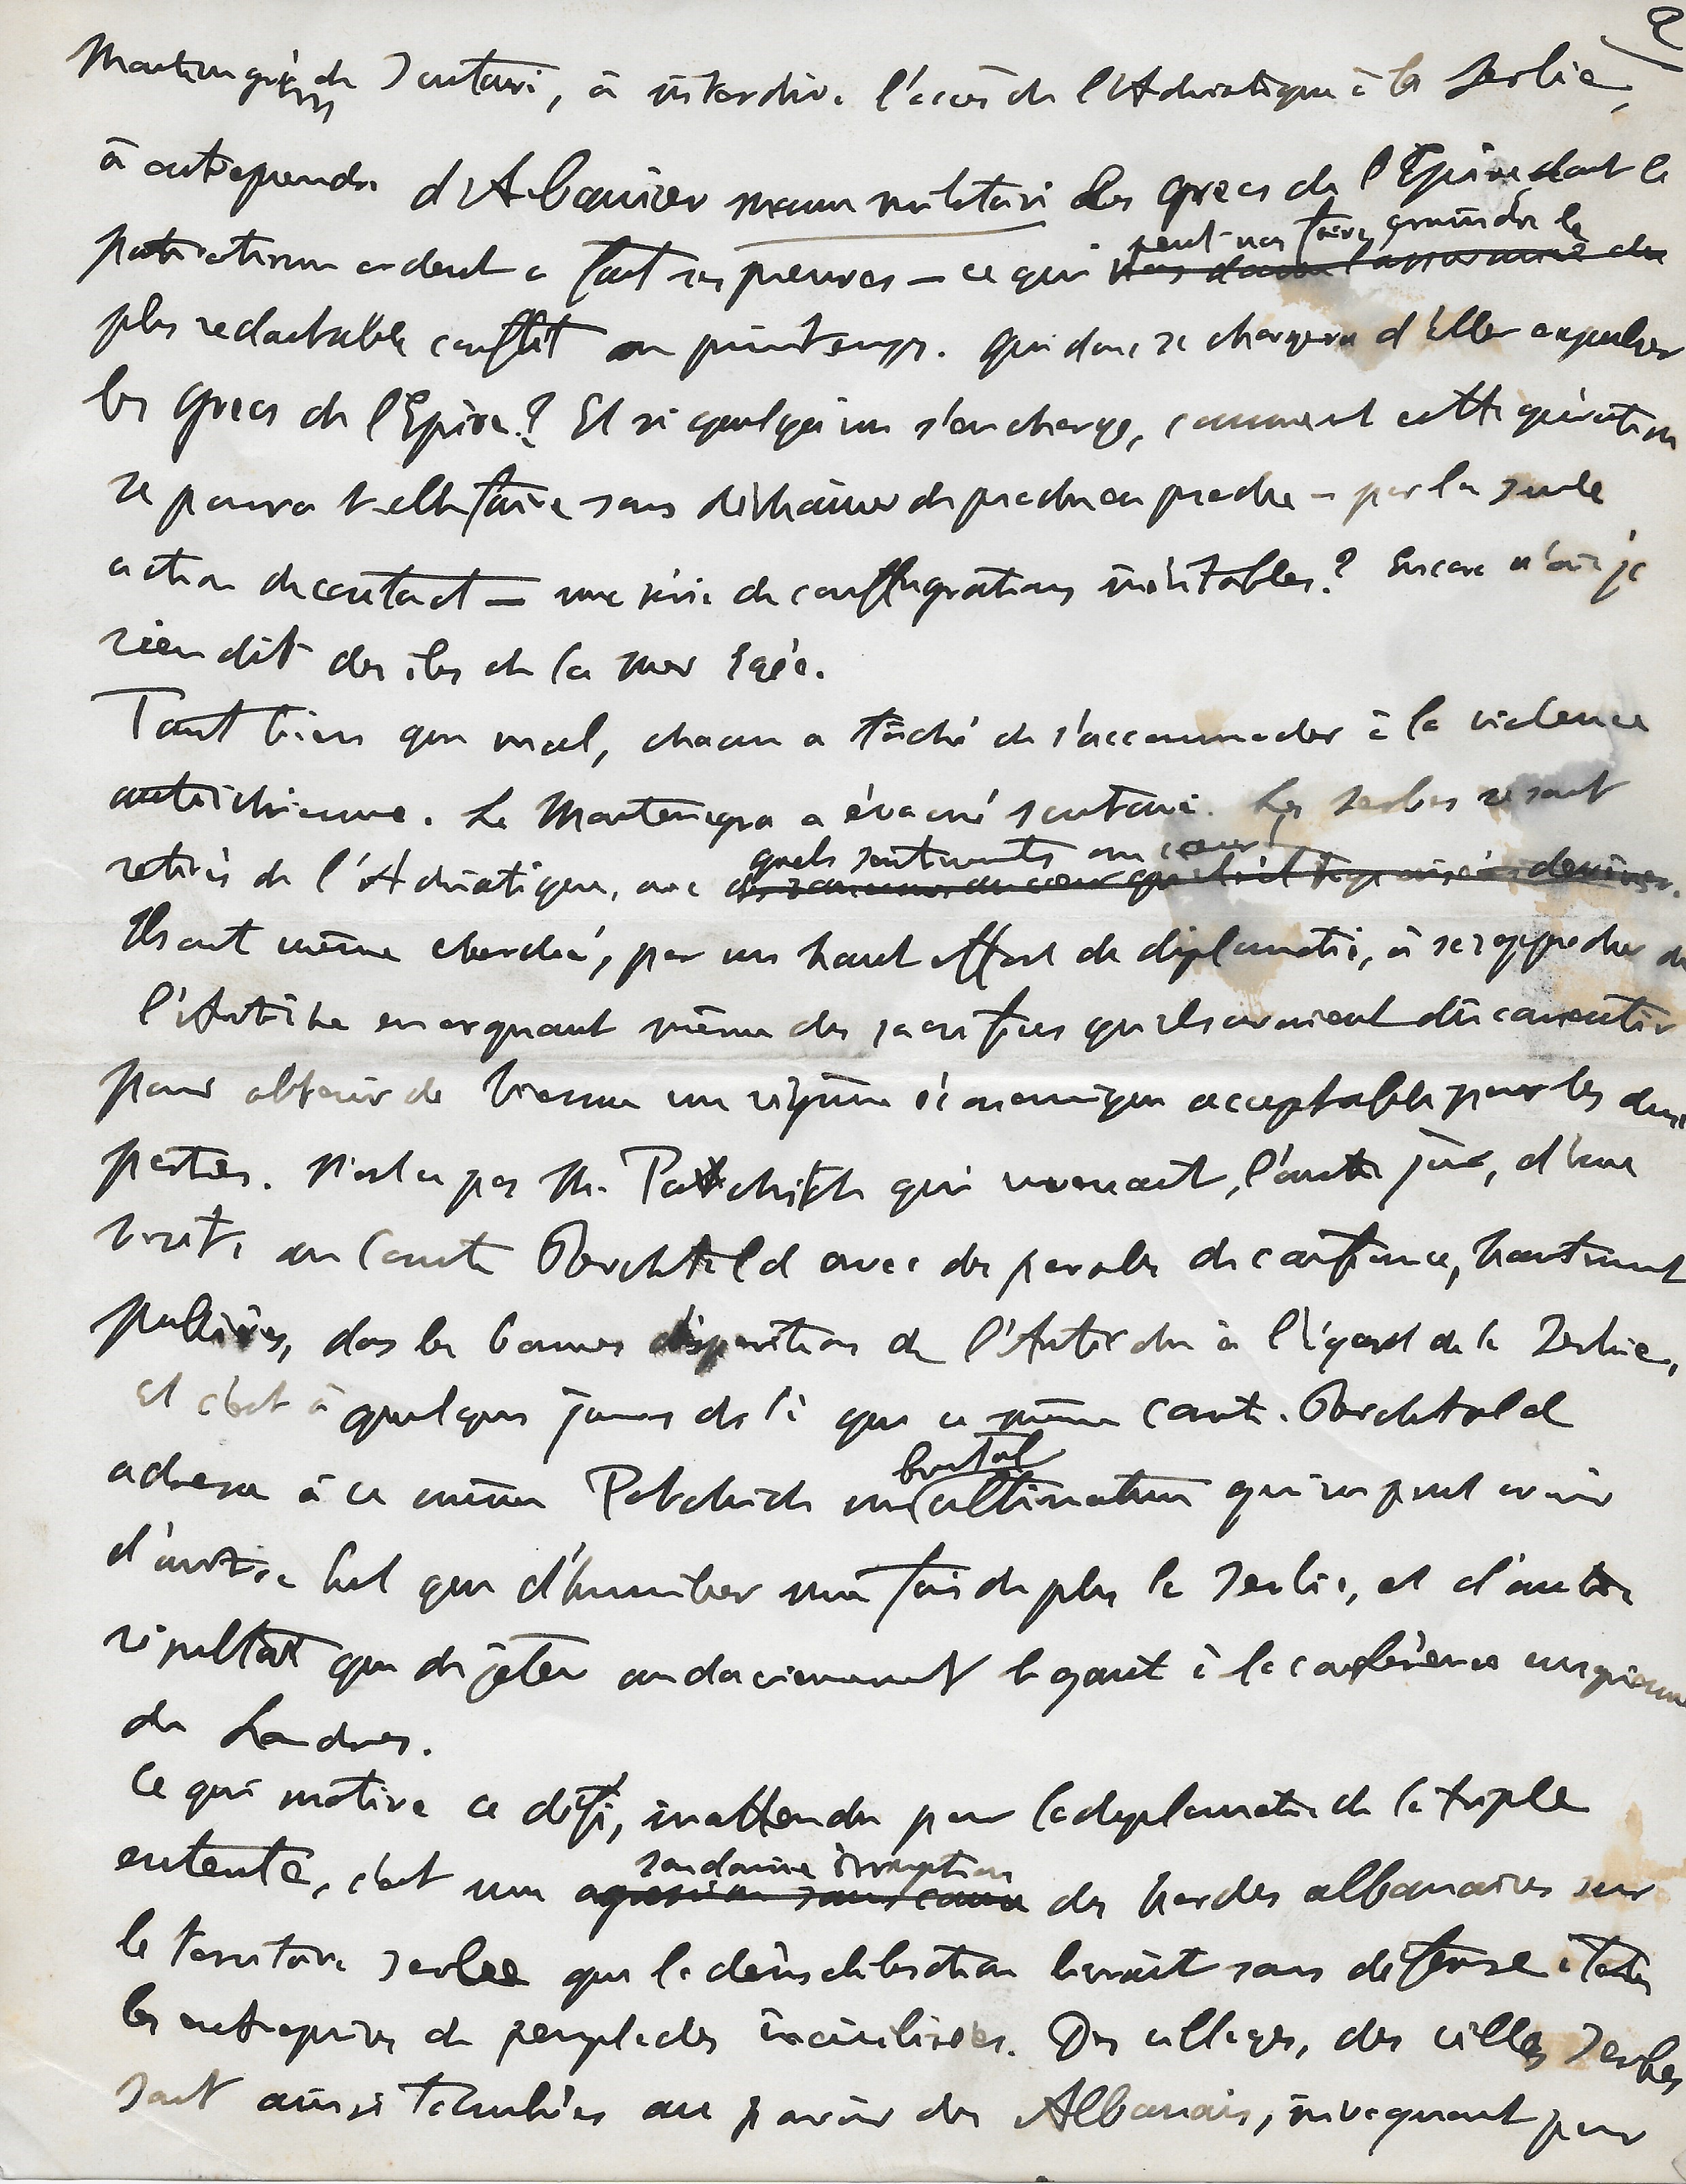 2
Monténégrins de Scutari, à interdire l'accès de l'Adriatique à la Serbie,
à entreprendre d'Albaniser manu militari les grecs de l'Epire dont le
patriotisme ardent a fait ses preuves — ce qui
peut nous faire craindre le
nous donne l'assurance du
plus redoutable conflit au printemps. Qui donc se chargera d'aller expulser
les Grecs de l'Epire? Et si quelqu'un s'en charge, comment cette opération
se pourra t-elle faire sans déchaîner de proche en proche — par la seule
action de contact — une série de conflagrations inévitables? Encore n'ai-je
rien dit des îles de la mer Egée.
Tant bien que mal, chacun a tâché de s'accommoder à la violence
autrichienne. Le Montenegro a évacué Scutari. Les Serbes se sont
retirés de l'Adriatique, avec
quels sentiments au cœur!
des rancunes au cœur qu'il est trop aisé de deviner.
Ils ont même cherché, par un haut effort de diplomatie, à se rapprocher de
l'Autriche en arguant même des sacrifices qu'ils avaient dû consentir
pour obtenir de Vienne un régime économique acceptable pour les deux
parties. N'est-ce pas M. Patchitch qui revenait, l'autre jour, d'une
visite au Comte Berchtold avec des paroles de confiance, hautement
publiées, dans les bonnes dispositions de l'Autriche à l'égard de la Serbie,
et c'est à quelques jours de là que ce même comte Berchtold
adresse à ce même Patchich un
brutal
ultimatum qui ne peut avoir
d'autre but que d'humilier une fois de plus la Serbie, et d'autre
résultat que de jeter audacieusement le gant à la conférence européenne
de Londres.
Ce qui motive ce défi, inattendu pour la diplomatie de la triple
entente, c'est une
soudaine irruption
agression sans cause
des hordes albanaises sur
le territoire serbe que la démobilisation livrait sans défense à toutes
les entreprises de peuplades incivilisées. Des villages, des villes Serbes
sont ainsi tombées au pouvoir des Albanais, invoquant pour